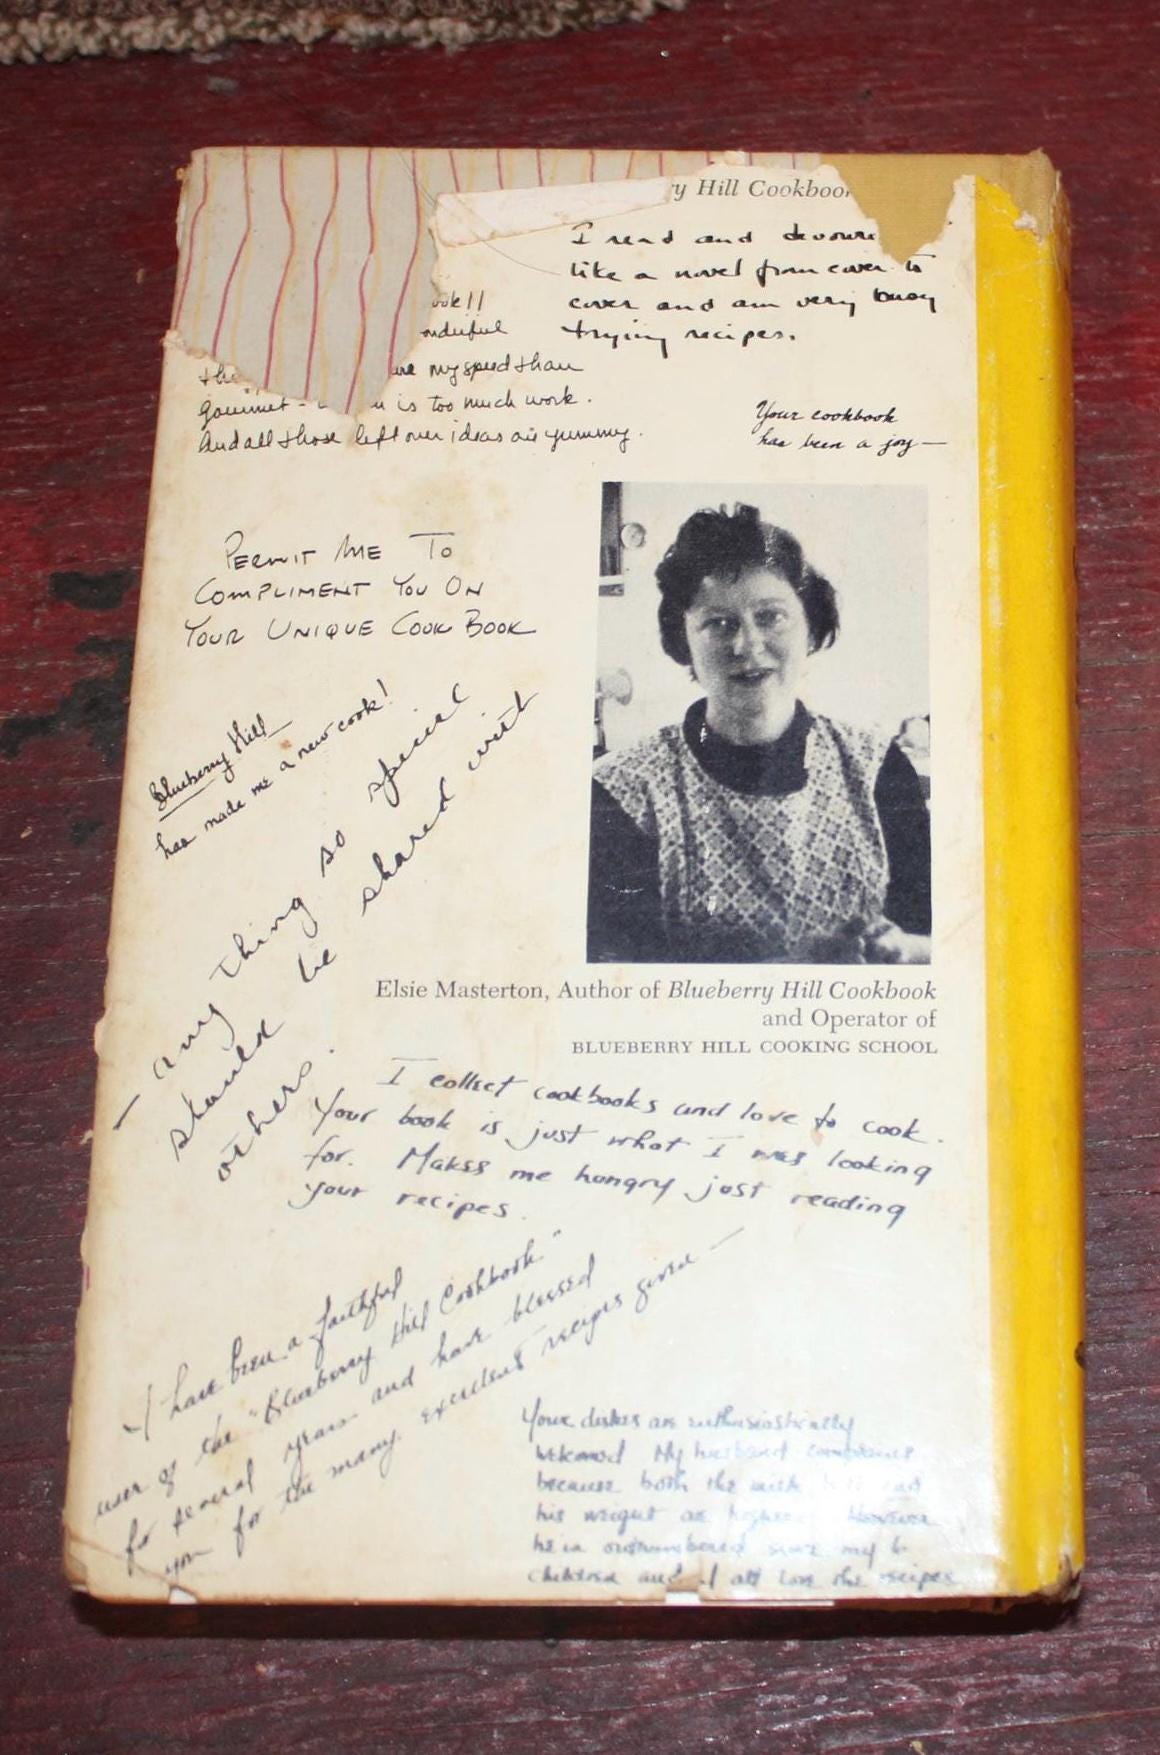 Hill Cookbook
I read and
like a novel from cover to
cover and am very busy
trying recipes.
my speed than
is too much work.
And all those left over ideas are yummy.
Your cookbook
has been a joy—
PERMIT ME TO
COMPLIMENT YOU ON
YOUR UNIQUE COOK BOOK
Blueberry Hill
has made me a new cook!
— any thing so special
should be shared with
others.
Elsie Masterton, Author of Blueberry Hill Cookbook
and Operator of
BLUEBERRY HILL COOKING SCHOOL
I collect cookbooks and love to cook.
Your book is just what I was looking
for. Makes me hungry just reading
your recipes.
I have been a faithful
user of the "Blueberry Hill Cookbook"
for several years and have blessed
you for the many excellent recipes given—
Your dishes are enthusiastically
welcomed My husband complains
because both the
his weight are However
he is outnumbered since my 6
children and I all love the recipes